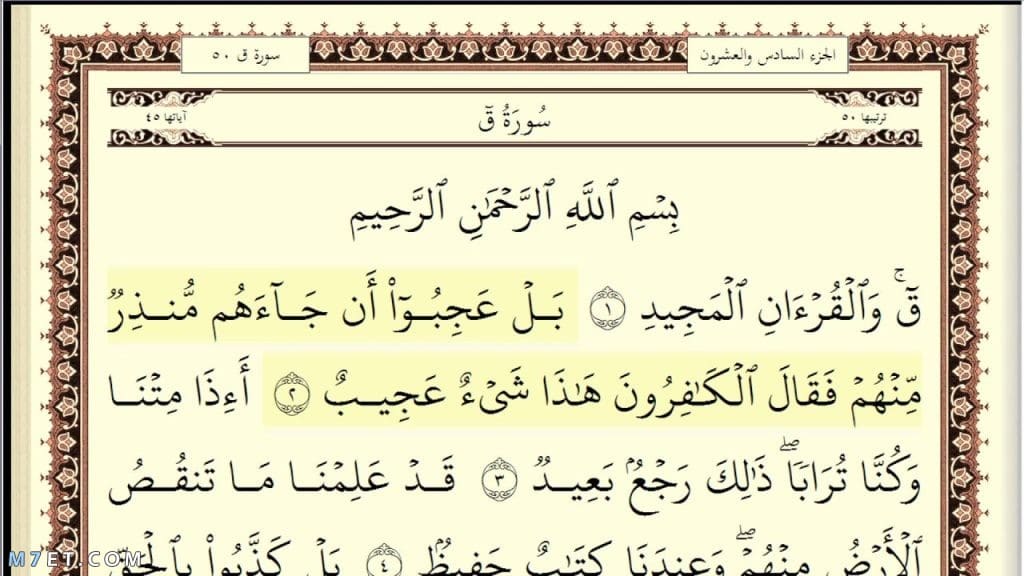 الجزء السادس والعشرون
سورة ق ٥٠
ترتيبها ٥٠
سُورَةُ قٓ
آياتها ٤٥
بِسْمِ ٱللَّهِ ٱلرَّحْمَٰنِ ٱلرَّحِيمِ
قٓ ۚ وَٱلْقُرْءَانِ ٱلْمَجِيدِ ١ بَلْ عَجِبُوٓا۟ أَن جَآءَهُم مُّنذِرٌ
مِّنْهُمْ فَقَالَ ٱلْكَٰفِرُونَ هَٰذَا شَىْءٌ عَجِيبٌ ٢ أَءِذَا مِتْنَا
وَكُنَّا تُرَابًا ۖ ذَٰلِكَ رَجْعٌۢ بَعِيدٌ ٣ قَدْ عَلِمْنَا مَا تَنقُصُ
ٱلْأَرْضُ مِنْهُمْ ۖ وَعِندَنَا كِتَٰبٌ حَفِيظٌۢ ٤ بَلْ كَذَّبُوا۟ بِٱلْحَقِّ
M7ET.COM